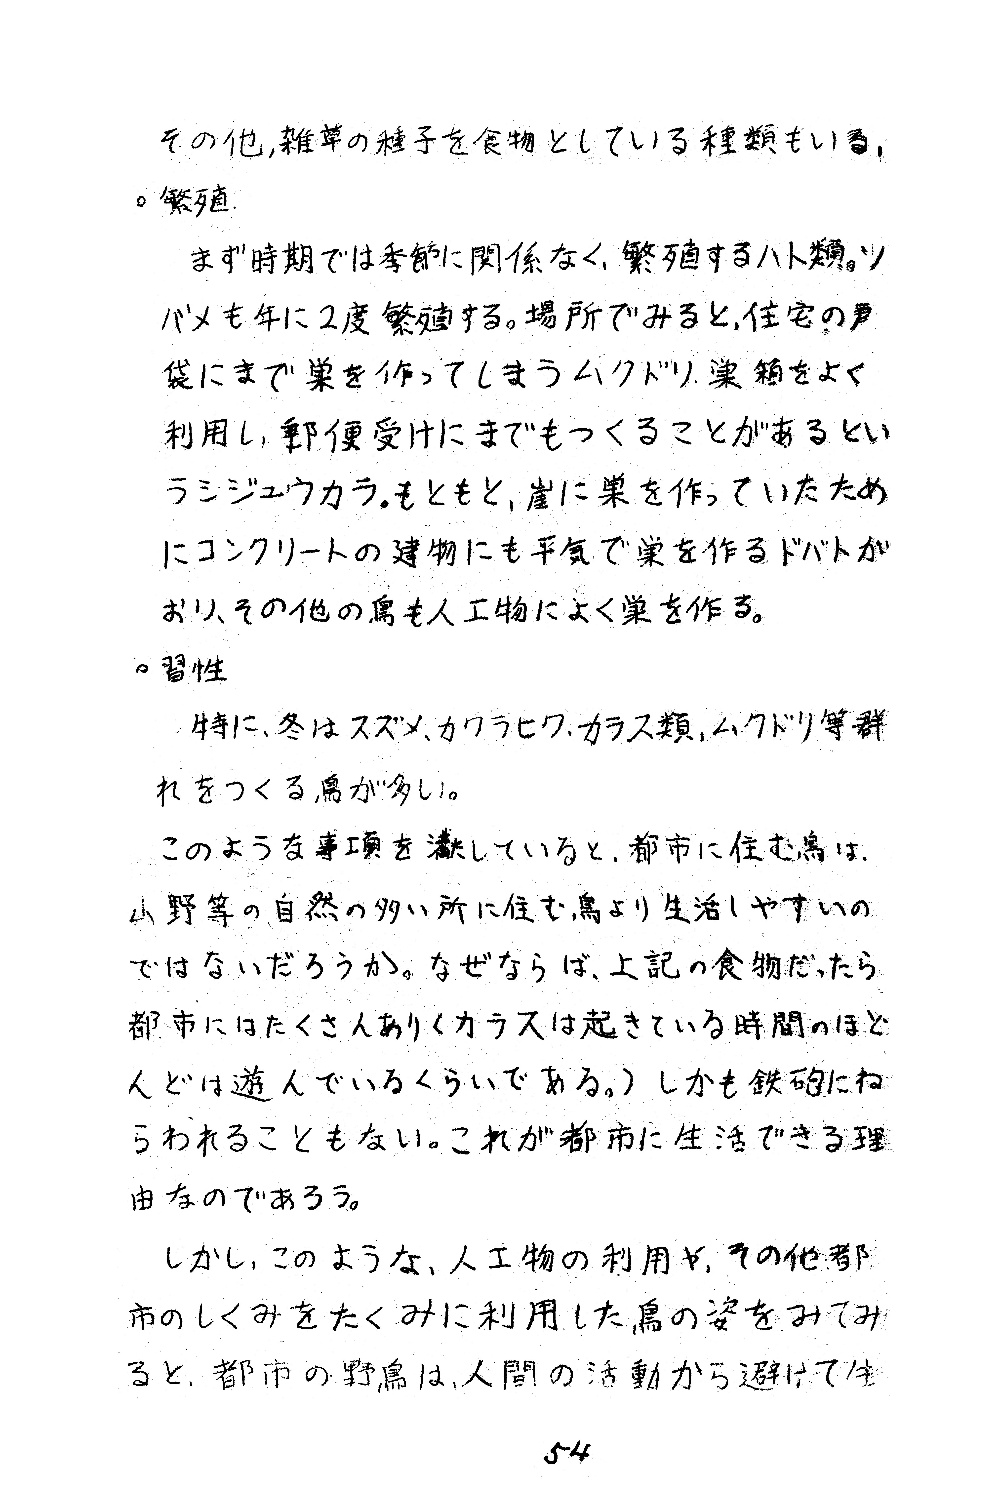 その他,雑草の種子を食物としている種類もいる,
○繁殖.
まず時期では季節に関係なく,繁殖するハト類。ツ
バメも年に2度繁殖する。場所でみると,住宅の戸
袋にまで巣を作ってしまうムクドリ.巣箱をよく
利用し,郵便受けにまでもつくることがあるとい
うシジュウカラ。もともと,崖に巣を作っていたため
にコンクリートの建物にも平気で巣を作るドバトが
おり、その他の鳥も人工物によく巣を作る。
○習性
特に、冬はスズメ、カワラヒワ.カラス類,ムクドリ等群
れをつくる鳥が多い。
このような事項を满していると.都市に住む鳥は.
山野等の自然の多い所に住む鳥より生活しやすいの
ではないだろうか。なぜならば、上記の食物だったら
都市にはたくさんあり(カラスは起きている時間のほと
んどは遊んでいるくらいである。)しかも鉄砲にね
らわれることもない。これが都市に生活できる理
由なのであろう。
しかし,このような、人工物の利用や,その他都
市のしくみをたくみに利用した鳥の姿をみてみ
ると.都市の野鳥は、人間の活動から避けて生
54